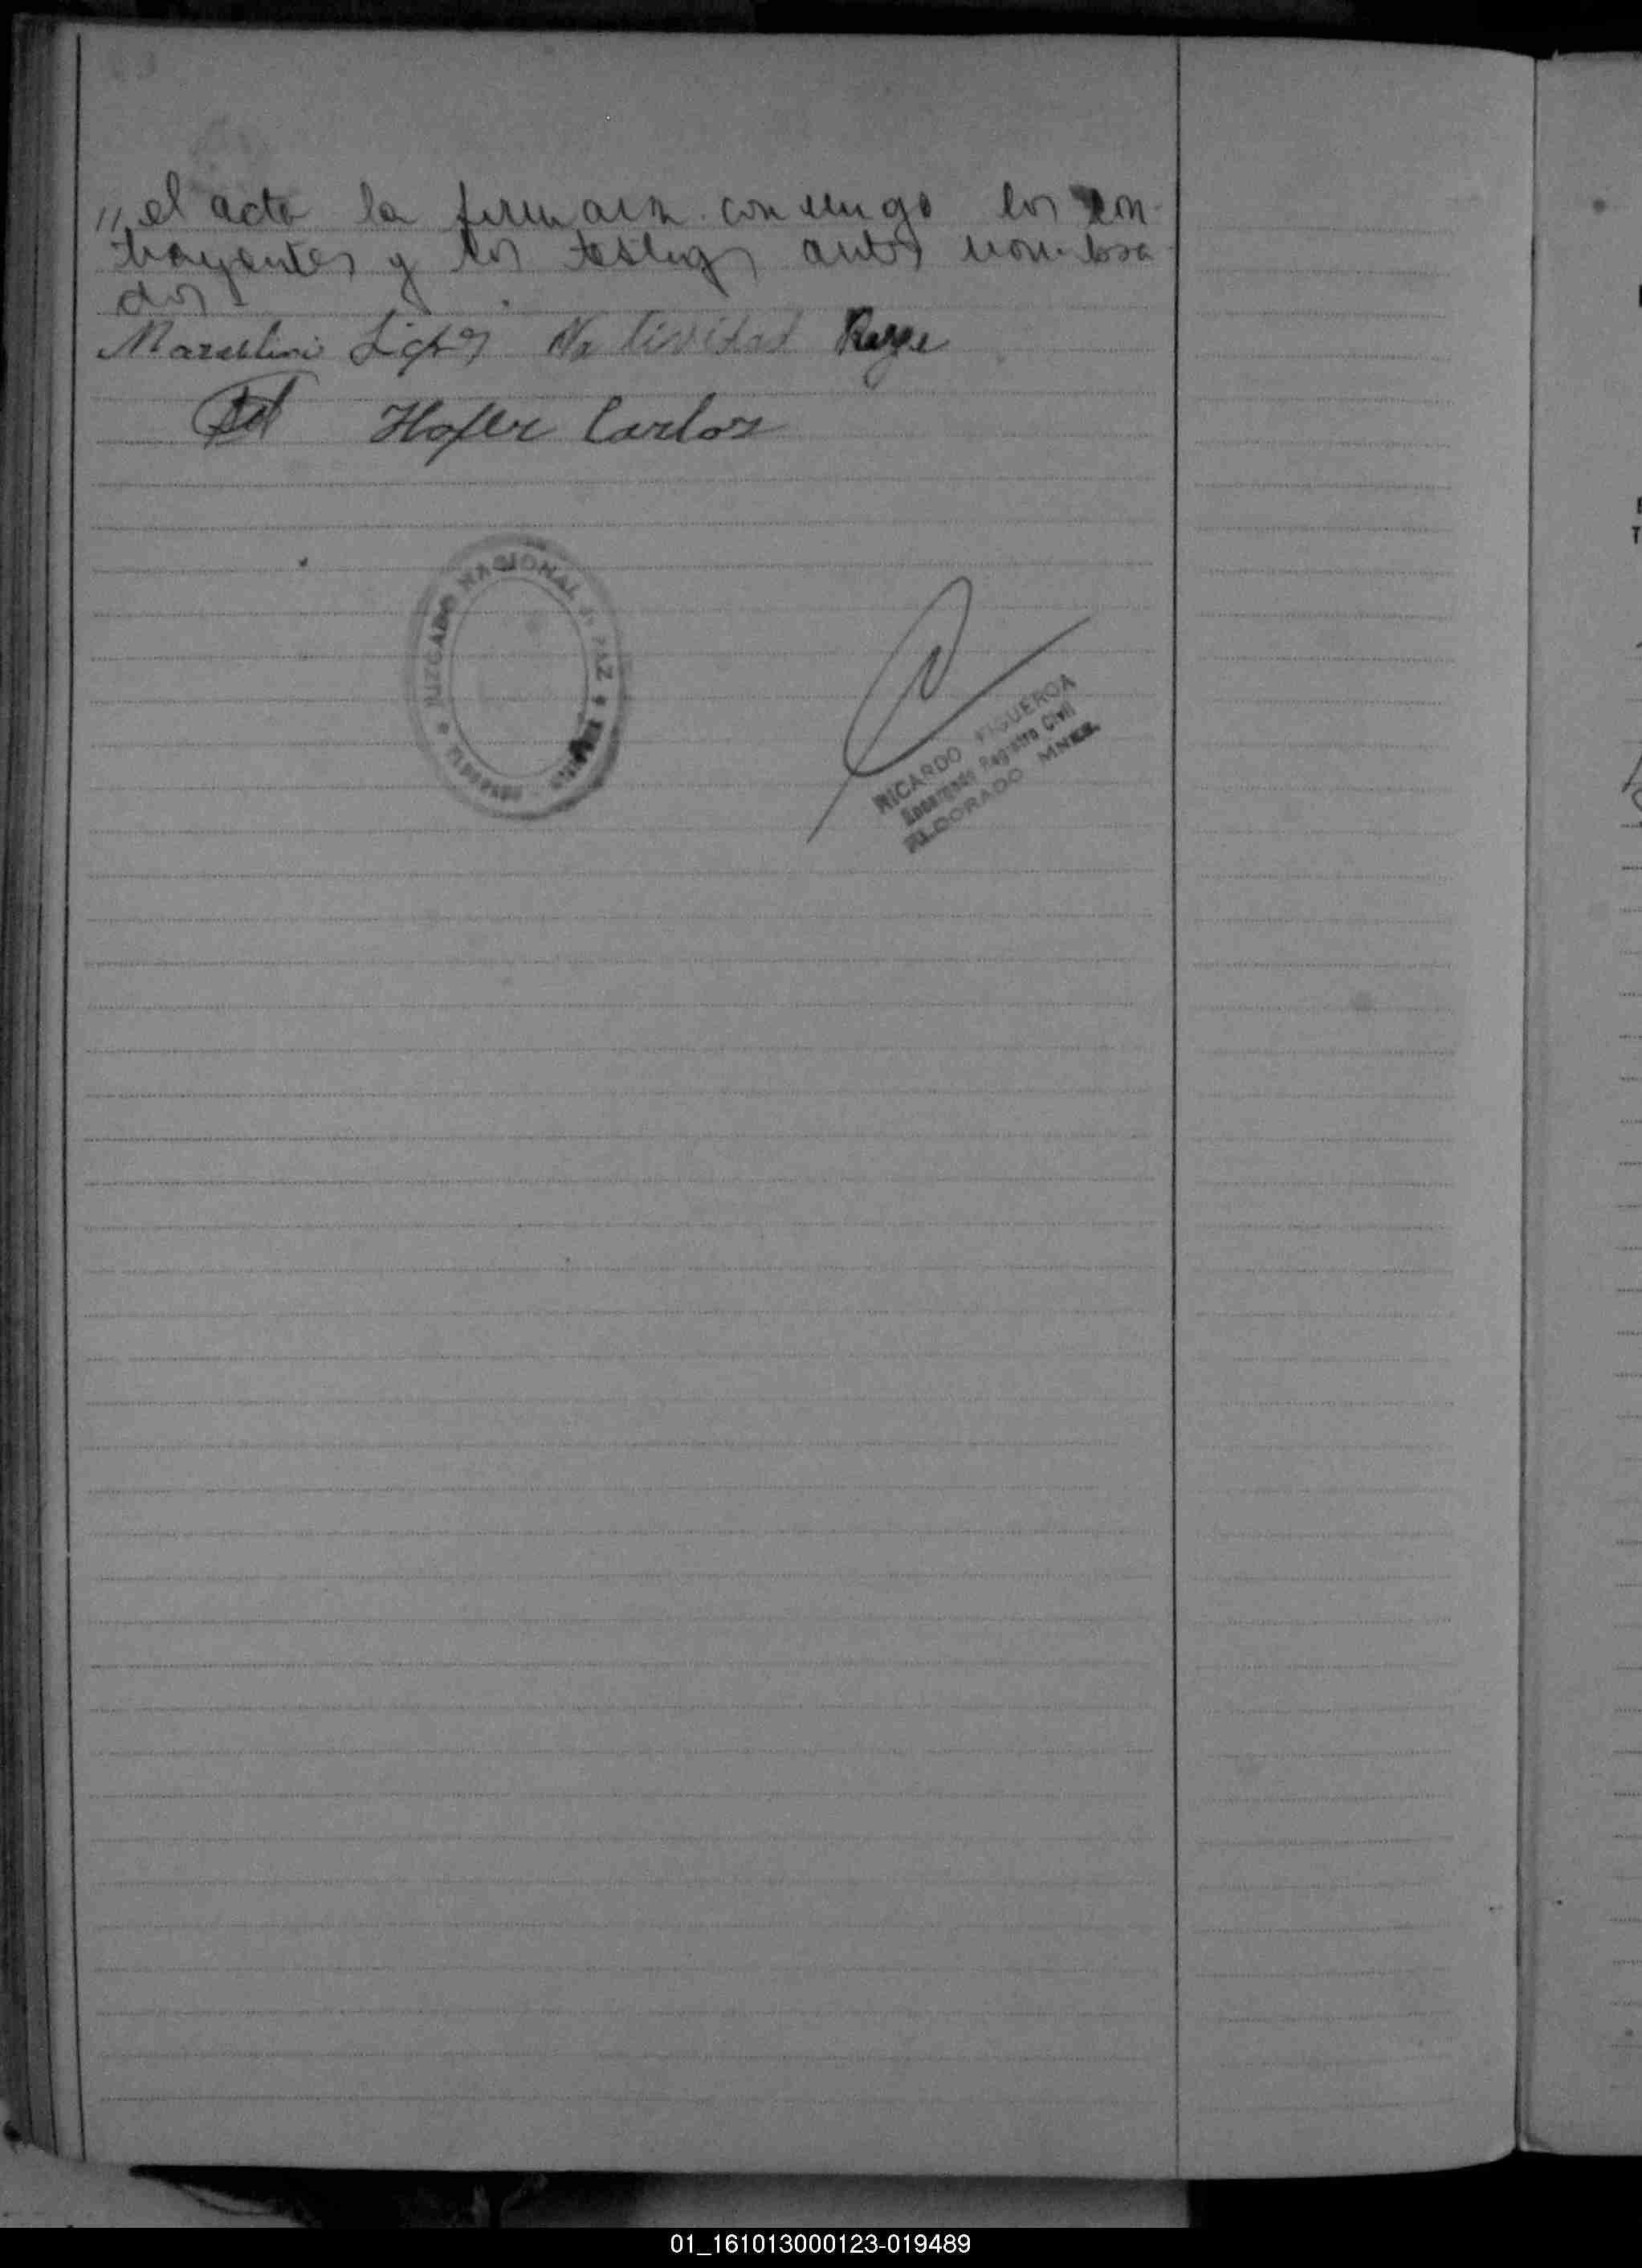 // el acta la firman conmigo los con-
trayentes y los testigos antes nombra-
dos.
Marcelino López Natividad
Hofer Carlos
JUZGADO NACIONAL DE PAZ
ELDORADO - MISIONES
RICARDO FIGUEROA
Encargado Registro Civil
ELDORADO MNES.
01_161013000123-019489